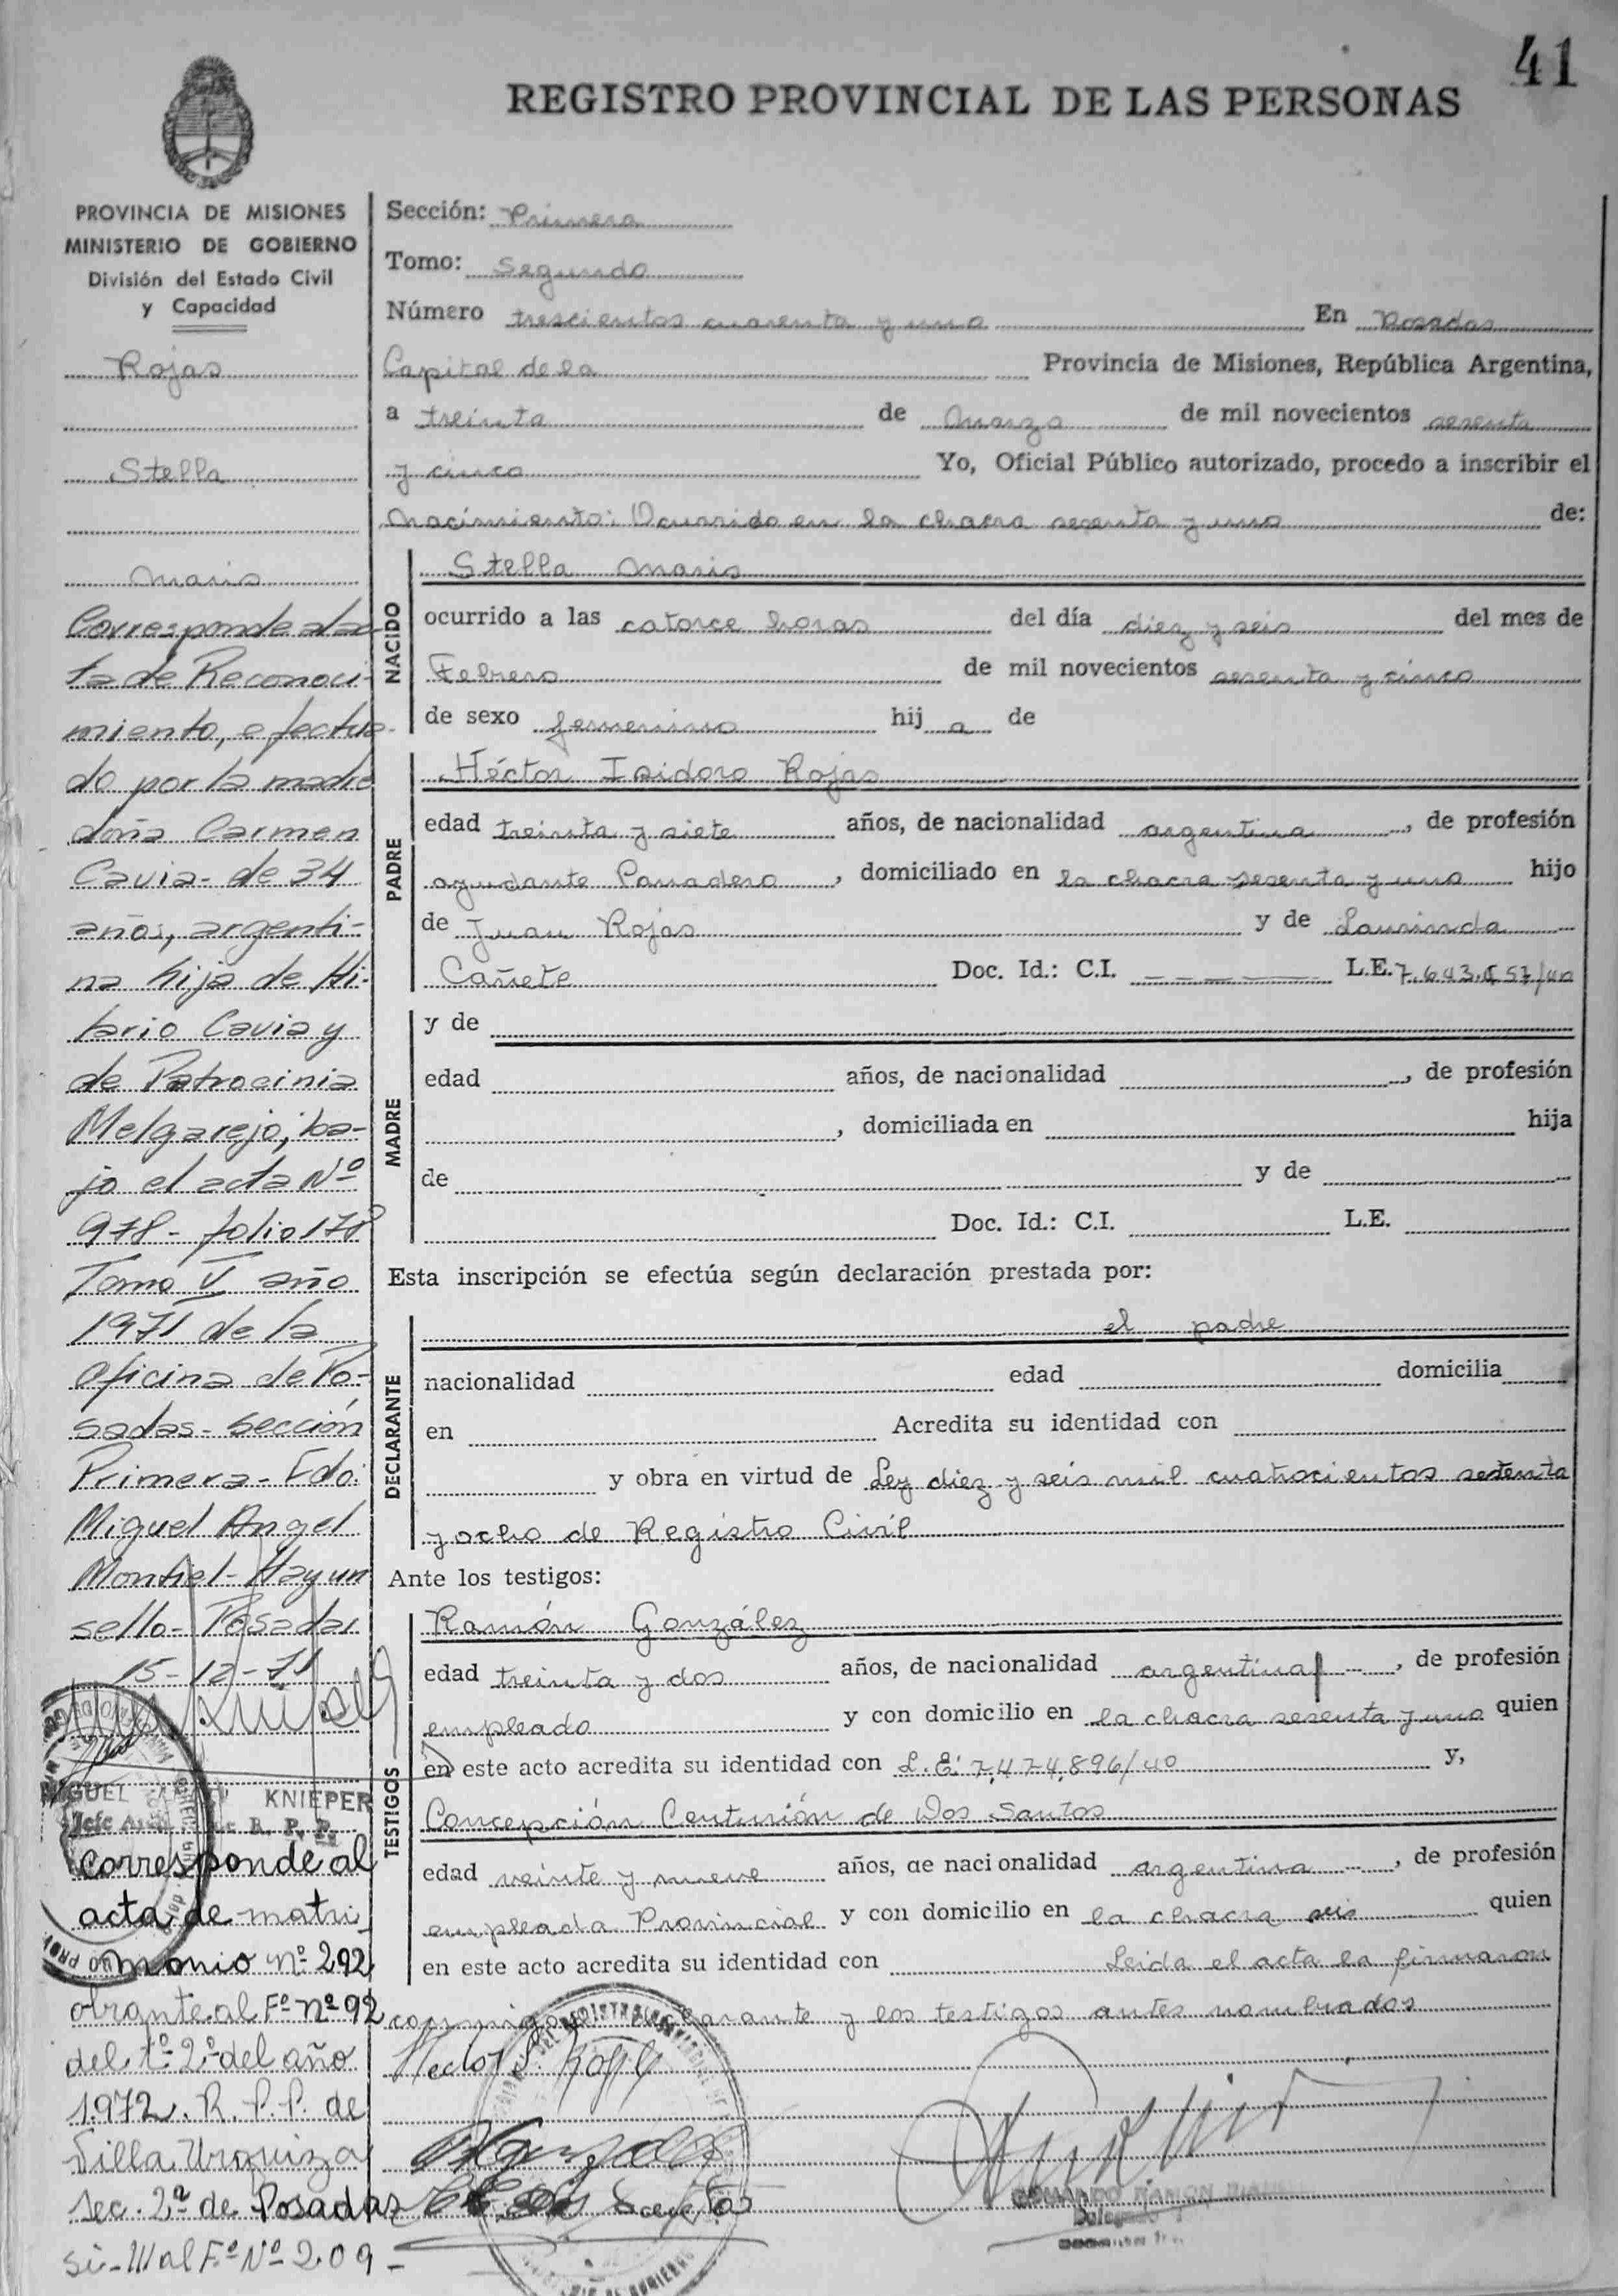 41
REGISTRO PROVINCIAL DE LAS PERSONAS
PROVINCIA DE MISIONES
MINISTERIO DE GOBIERNO
División del Estado Civil
y Capacidad
Rojas
Stella
Maris
Corresponde al ac-
ta de Reconoci-
miento, efectua-
do por la madre
doña Carmen
Cavia - de 34
años, argenti-
na hija de Hi-
lario Cavia y
de Patrocinia
Melgarejo, ba-
jo el acta Nº
978 - folio 178
Tomo V año
1971 de la
Oficina de Po-
sadas - Sección
Primera - Fdo:
Miguel Angel
Montiel - Hay un
sello - Posadas
15-12-71
MIGUEL KNIEPER
Jefe R. P. P.
Corresponde al
acta de matri-
monio nº 292
obrante al Fº nº 92
del tº 2º del año
1972. R. P. P. de
Villa Urquiza
Sec. 2ª de Posadas
al Fº Nº 209 -
Sección: Primera
Tomo: Segundo
Número trescientos cuarenta y uno En Posadas
Capital de la Provincia de Misiones, República Argentina,
a treinta de Marzo de mil novecientos sesenta
y cinco Yo, Oficial Público autorizado, procedo a inscribir el
Nacimiento: Ocurrido en la chacra sesenta y uno de:
NACIDO
Stella Maris
ocurrido a las catorce horas del día diez y seis del mes de
Febrero de mil novecientos sesenta y cinco
de sexo femenino hij a de
PADRE
Héctor Isidoro Rojas
edad treinta y siete años, de nacionalidad argentina, de profesión
ayudante Panadero, domiciliado en la chacra sesenta y uno hijo
de Juan Rojas y de Laurinda
Cañete Doc. Id.: C.I. L.E.
MADRE
y de
edad años, de nacionalidad , de profesión
, domiciliada en hija
de y de
Doc. Id.: C.I. L.E.
Esta inscripción se efectúa según declaración prestada por:
DECLARANTE
el padre
nacionalidad edad domicilia
en Acredita su identidad con
y obra en virtud de Ley diez y seis mil cuatrocientos setenta
y ocho de Registro Civil
Ante los testigos:
TESTIGOS
Ramón González
edad treinta y dos años, de nacionalidad argentina, de profesión
empleado y con domicilio en la chacra sesenta y uno quien
en este acto acredita su identidad con L.E. 7.474.896/40 y,
Concepción Centurión de Dos Santos
edad veinte y nueve años, de nacionalidad argentina, de profesión
empleada Provincial y con domicilio en la chacra seis quien
en este acto acredita su identidad con Leida el acta la firmaron
conmigo el declarante y los testigos antes nombrados
Hector I. Rojas
Gonzalez
C. C. de Dos Santos
Delegado